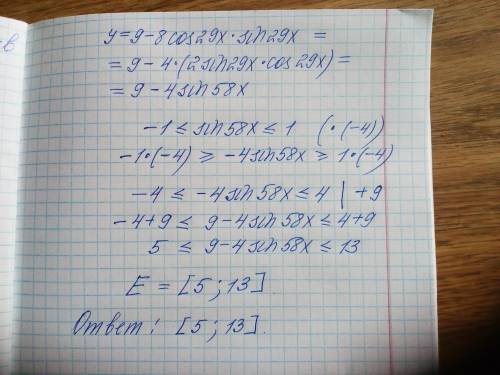 y = 9 - 8cos29x · sin29x =
= 9 - 4 · (2sin29x · cos29x) =
= 9 - 4sin58x
-1 ≤ sin58x ≤ 1 ( · (-4))
-1 · (-4) ≥ -4sin58x ≥ 1 · (-4)
-4 ≤ -4sin58x ≤ 4 | +9
-4+9 ≤ 9-4sin58x ≤ 4+9
5 ≤ 9-4sin58x ≤ 13
E = [5 ; 13].
Ответ: [5 ; 13].